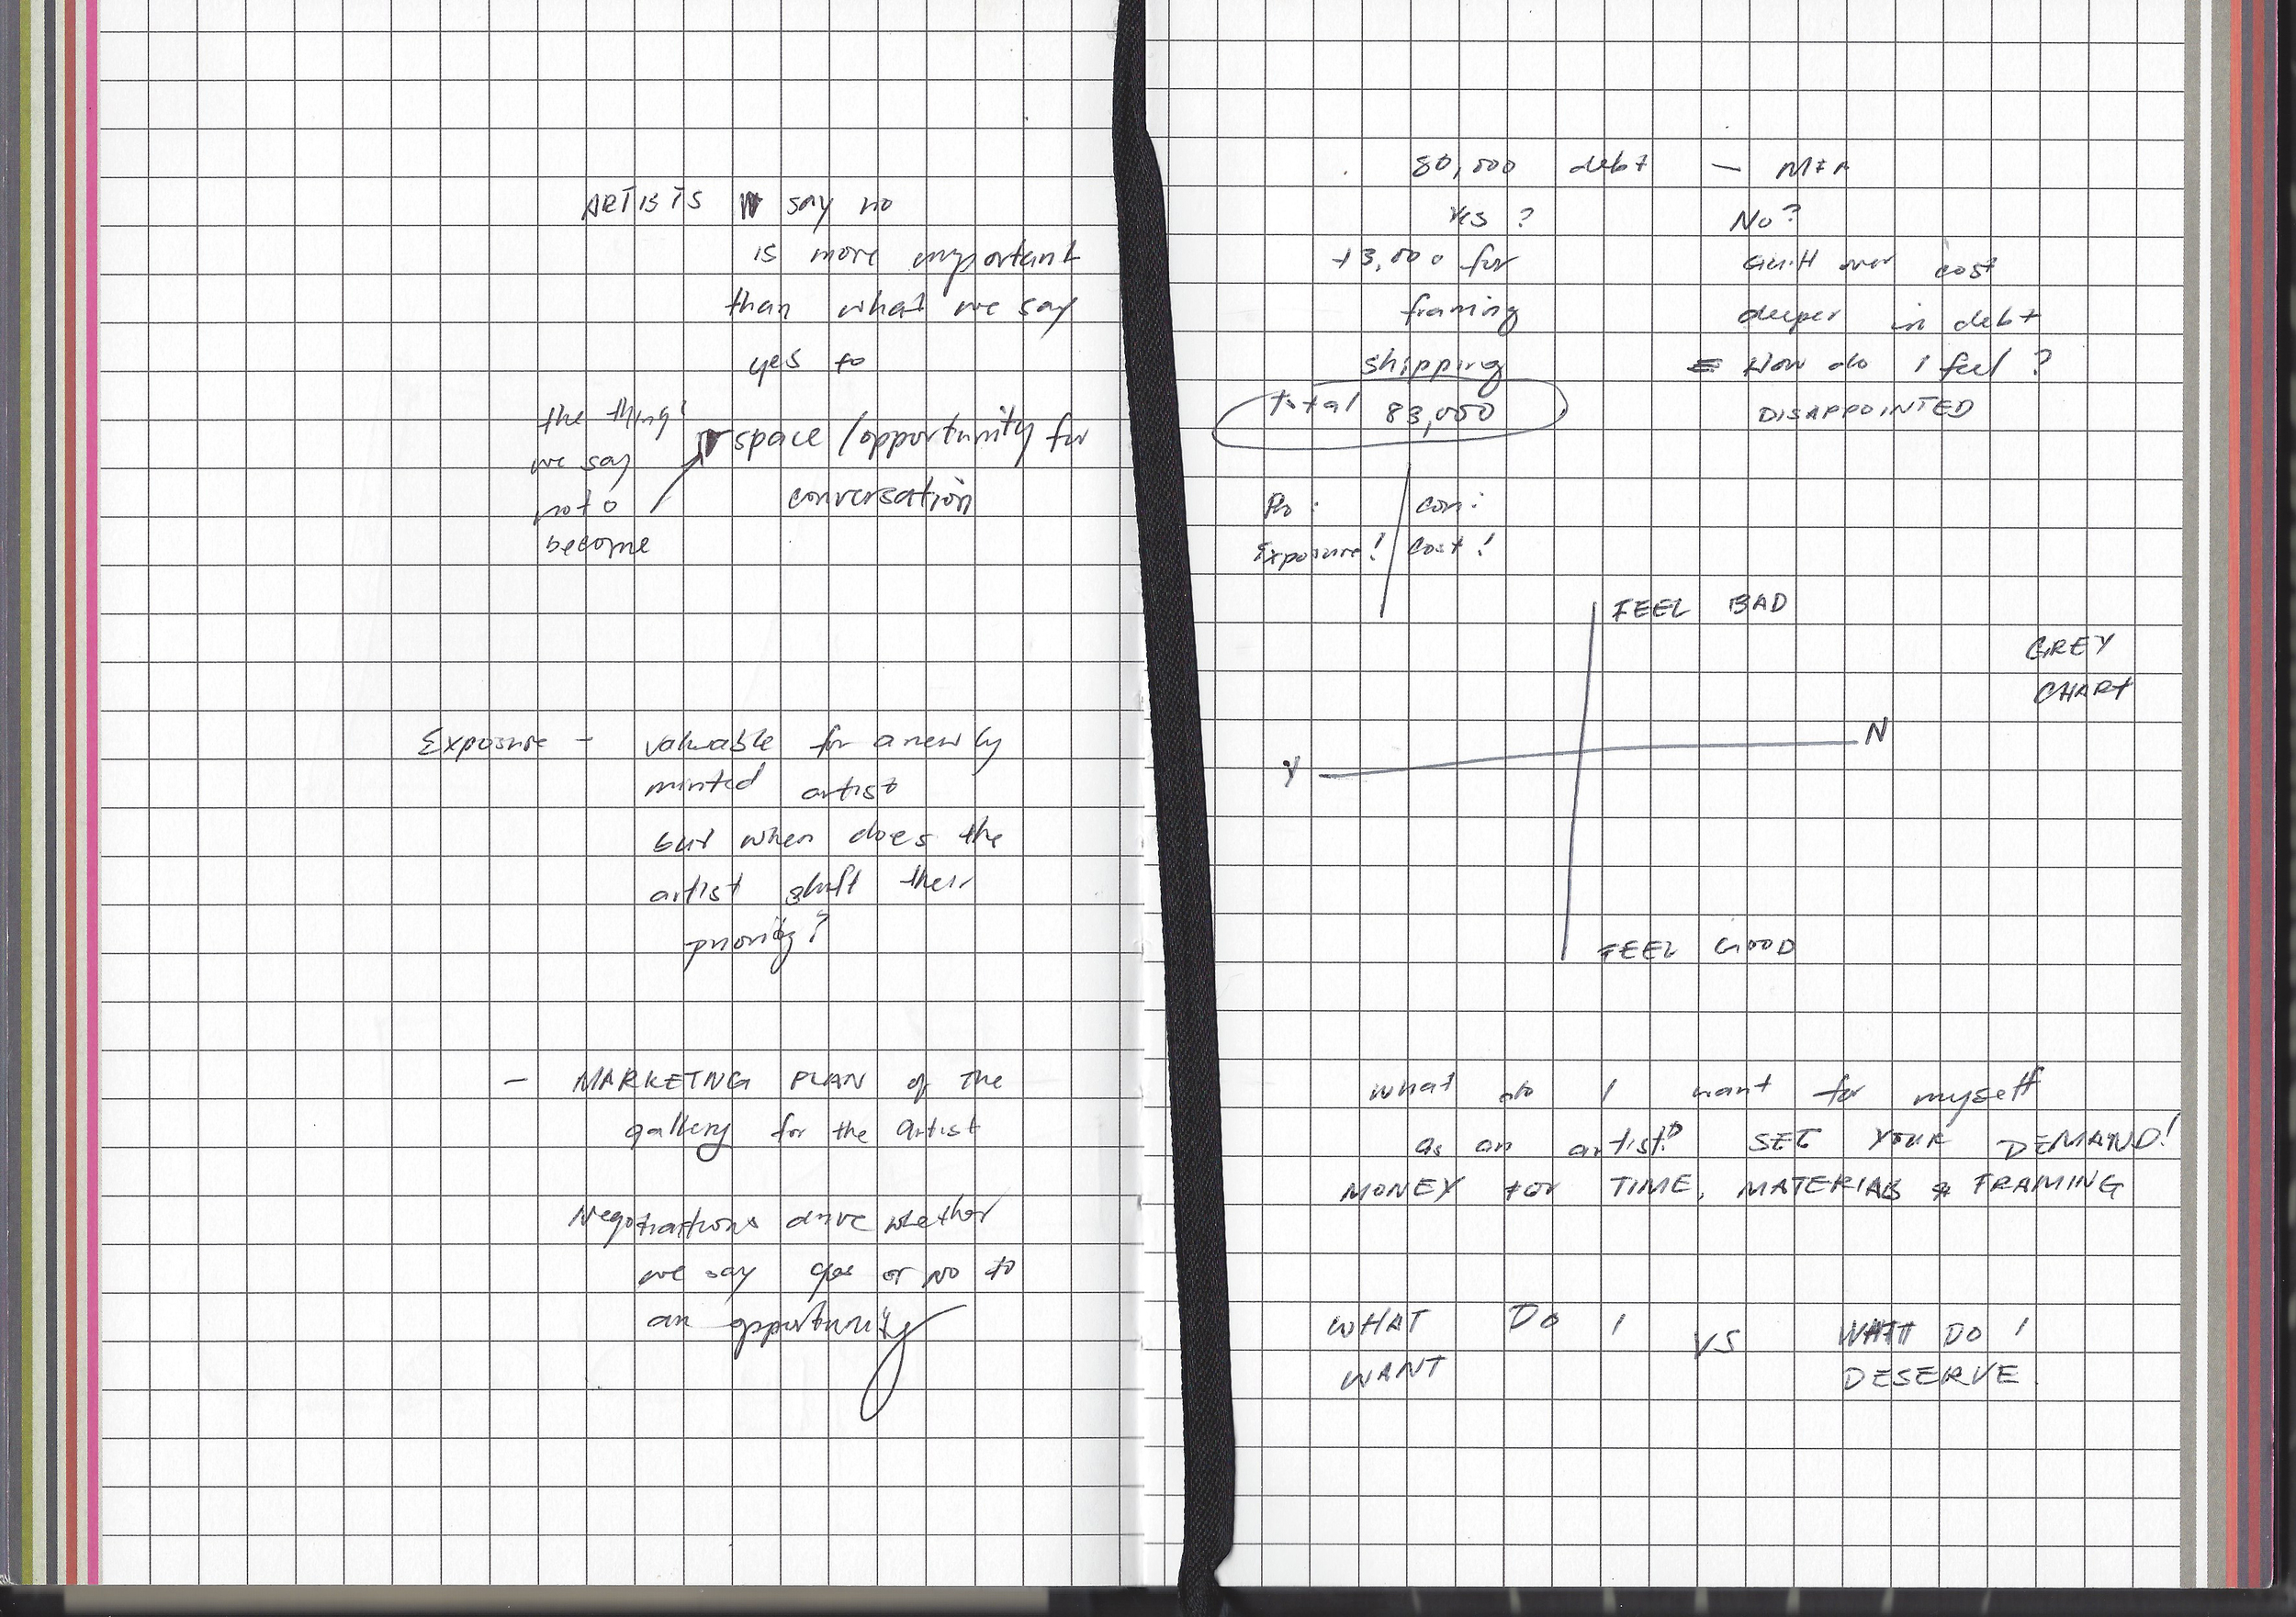 ARTISTS say no
is more important
than what we say
yes to
the things
we say
no to
become
space / opportunity for
conversation
Exposure - valuable for a newly
minted artist
but when does the
artist shift their
priority?
- MARKETNG PLAN of the
gallery for the artist
Negotiations drive whether
we say yes or no to
an opportunity
80,000 debt - MFA
Yes? No?
+3,000 for Guilt over cost
framing deeper in debt
shipping How do I feel?
total 83,000 DISAPPOINTED
Pro: Con:
Exposure! Cost!
FEEL BAD
GREY
CHART
Y N
FEEL GOOD
what do I want for myself
as an artist? SET YOUR DEMAND!
MONEY FOR TIME, MATERIALS & FRAMING
WHAT DO I VS WHAT DO I
WANT DESERVE.